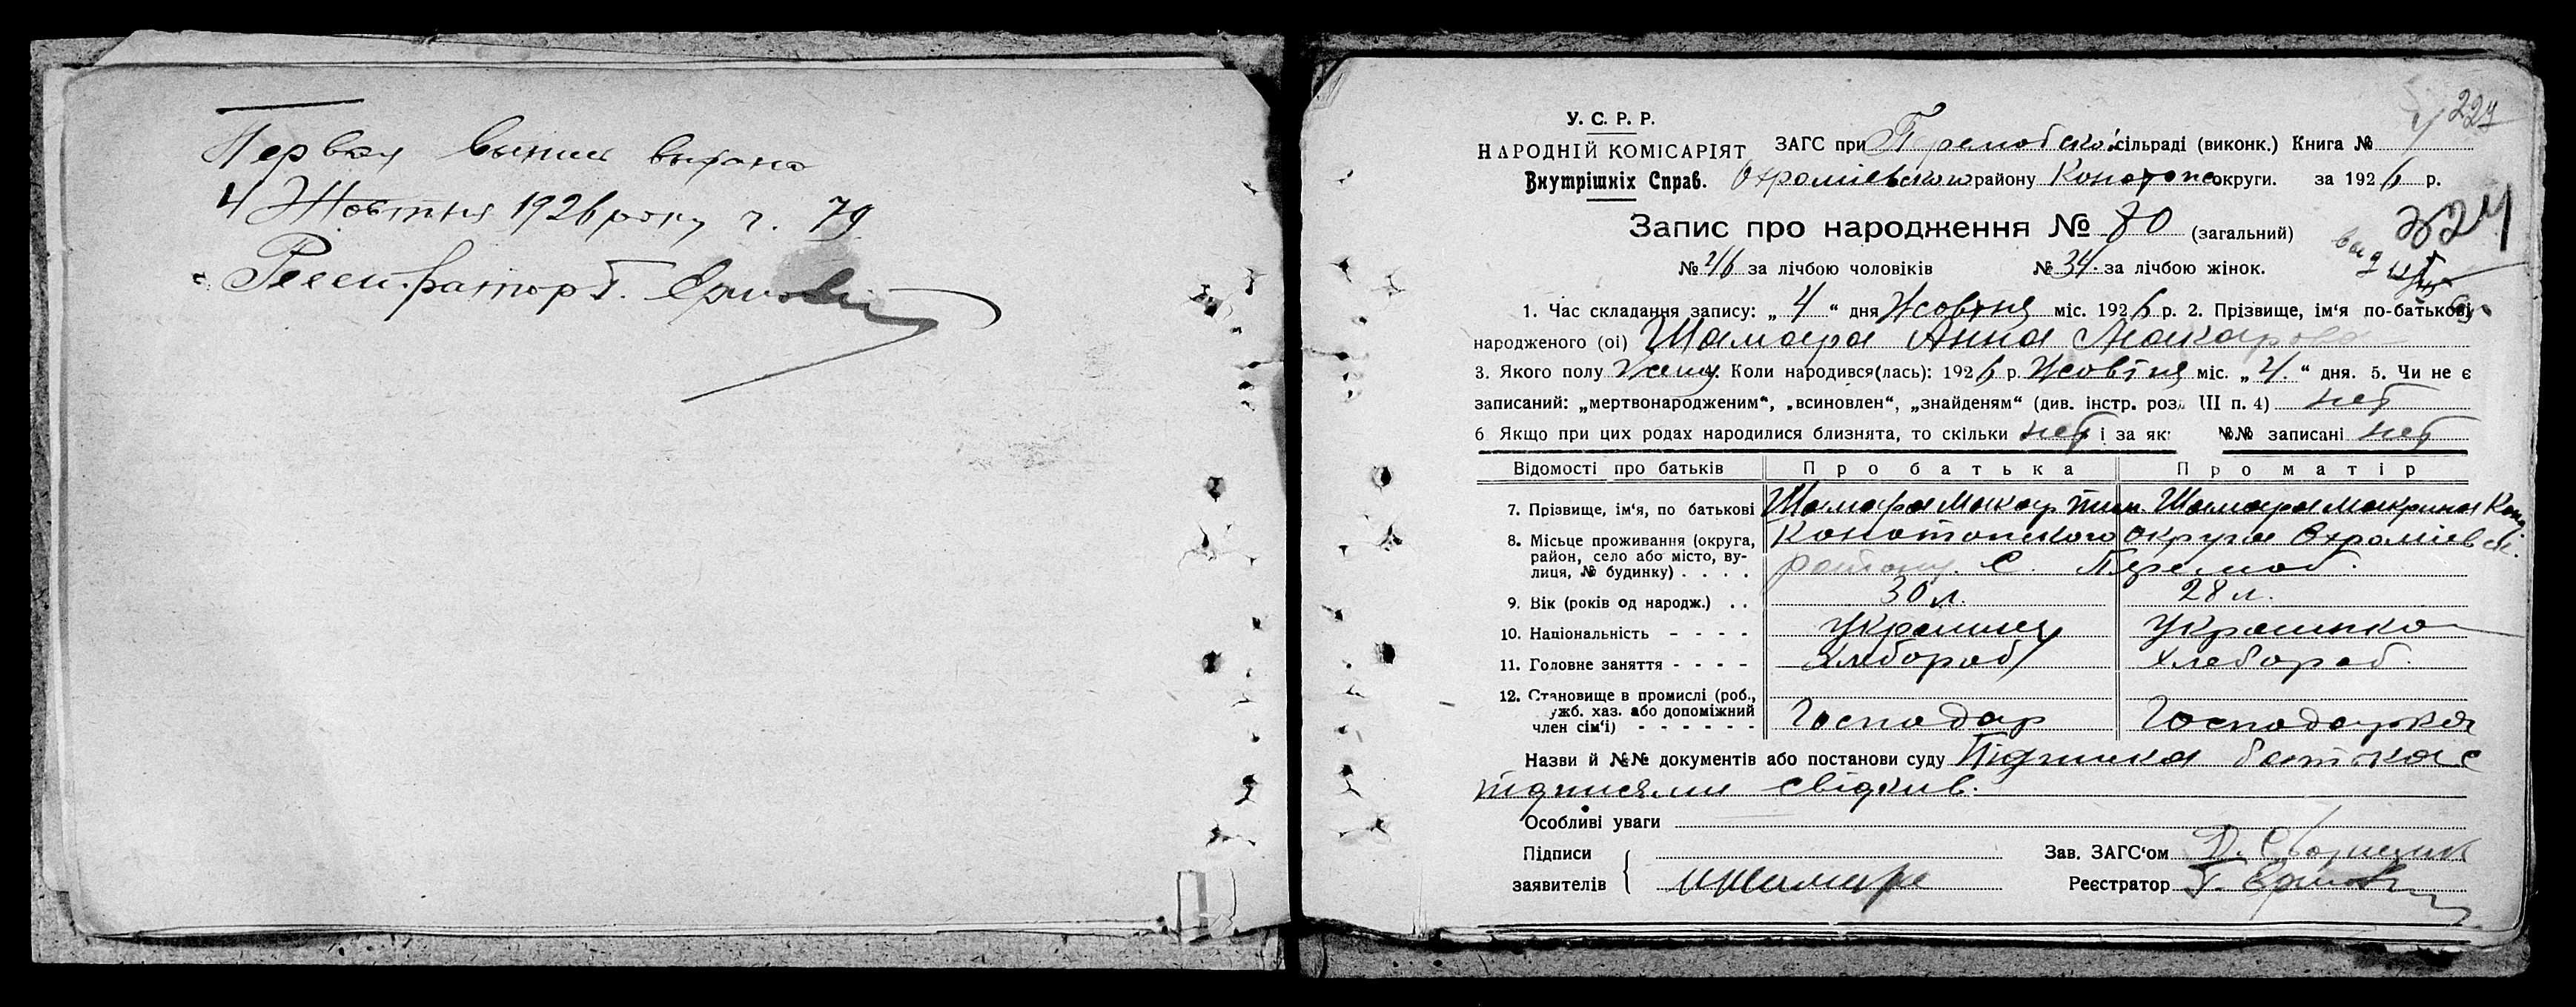 Первая выпись выдана
4 Жовтня 1926 року ч. 79
Реєстратор Г.
227
У. С. Р. Р.
НАРОДНІЙ КОМІСАРІЯТ
Внутрішніх Справ.
ЗАГС при сільраді (виконк.) Книга №
району Конотопс округи. за 1926 р.
Запис про народження № 80 (загальний)
324
№ 46 за лічбою чоловіків № 34. за лічбою жінок.
1. Час складання запису: „ 4 “ дня Жовтня міс. 1926 р. 2. Прізвище, ім'я по-батькові
народженого (ої) Шамара Анна Макарова
3. Якого полу Жен. 4. Коли народився(лась): 1926 р. Жовтня міс. „ 4. “ дня. 5. Чи не є
записаний: „мертвонародженим“, „всиновлен“, „знайденям“ (див. інстр. розд. III п. 4) нет
6 Якщо при цих родах народилися близнята, то скільки нет і за як №№ записані нет
Відомості про батьків Про батька Про матір
7. Прізвище, ім'я, по батькові Шамара Макар Тим. Шамара Макрина Конд.
8. Місьце проживання (округа, район, село або місто, вулиця, № будинку) . . . . Конотопского округа
району. С. Перемоб.
9. Вік (років од народж.) . . 30 л. 28 л.
10. Національність - - - - Украинец Украинка
11. Головне заняття - - - - Хлебороб Хлебороб.
12. Становище в промислі (роб.,
ужб. хаз. або допоміжний
член сім'ї) - - - - - - Господар Господарка
Назви й №№ документів або постанови суду Підписка батька с
підписями свідків.
Особливі уваги
Підписи
заявителів Шамара
Зав. ЗАГС'ом Д.
Реєстратор Г.